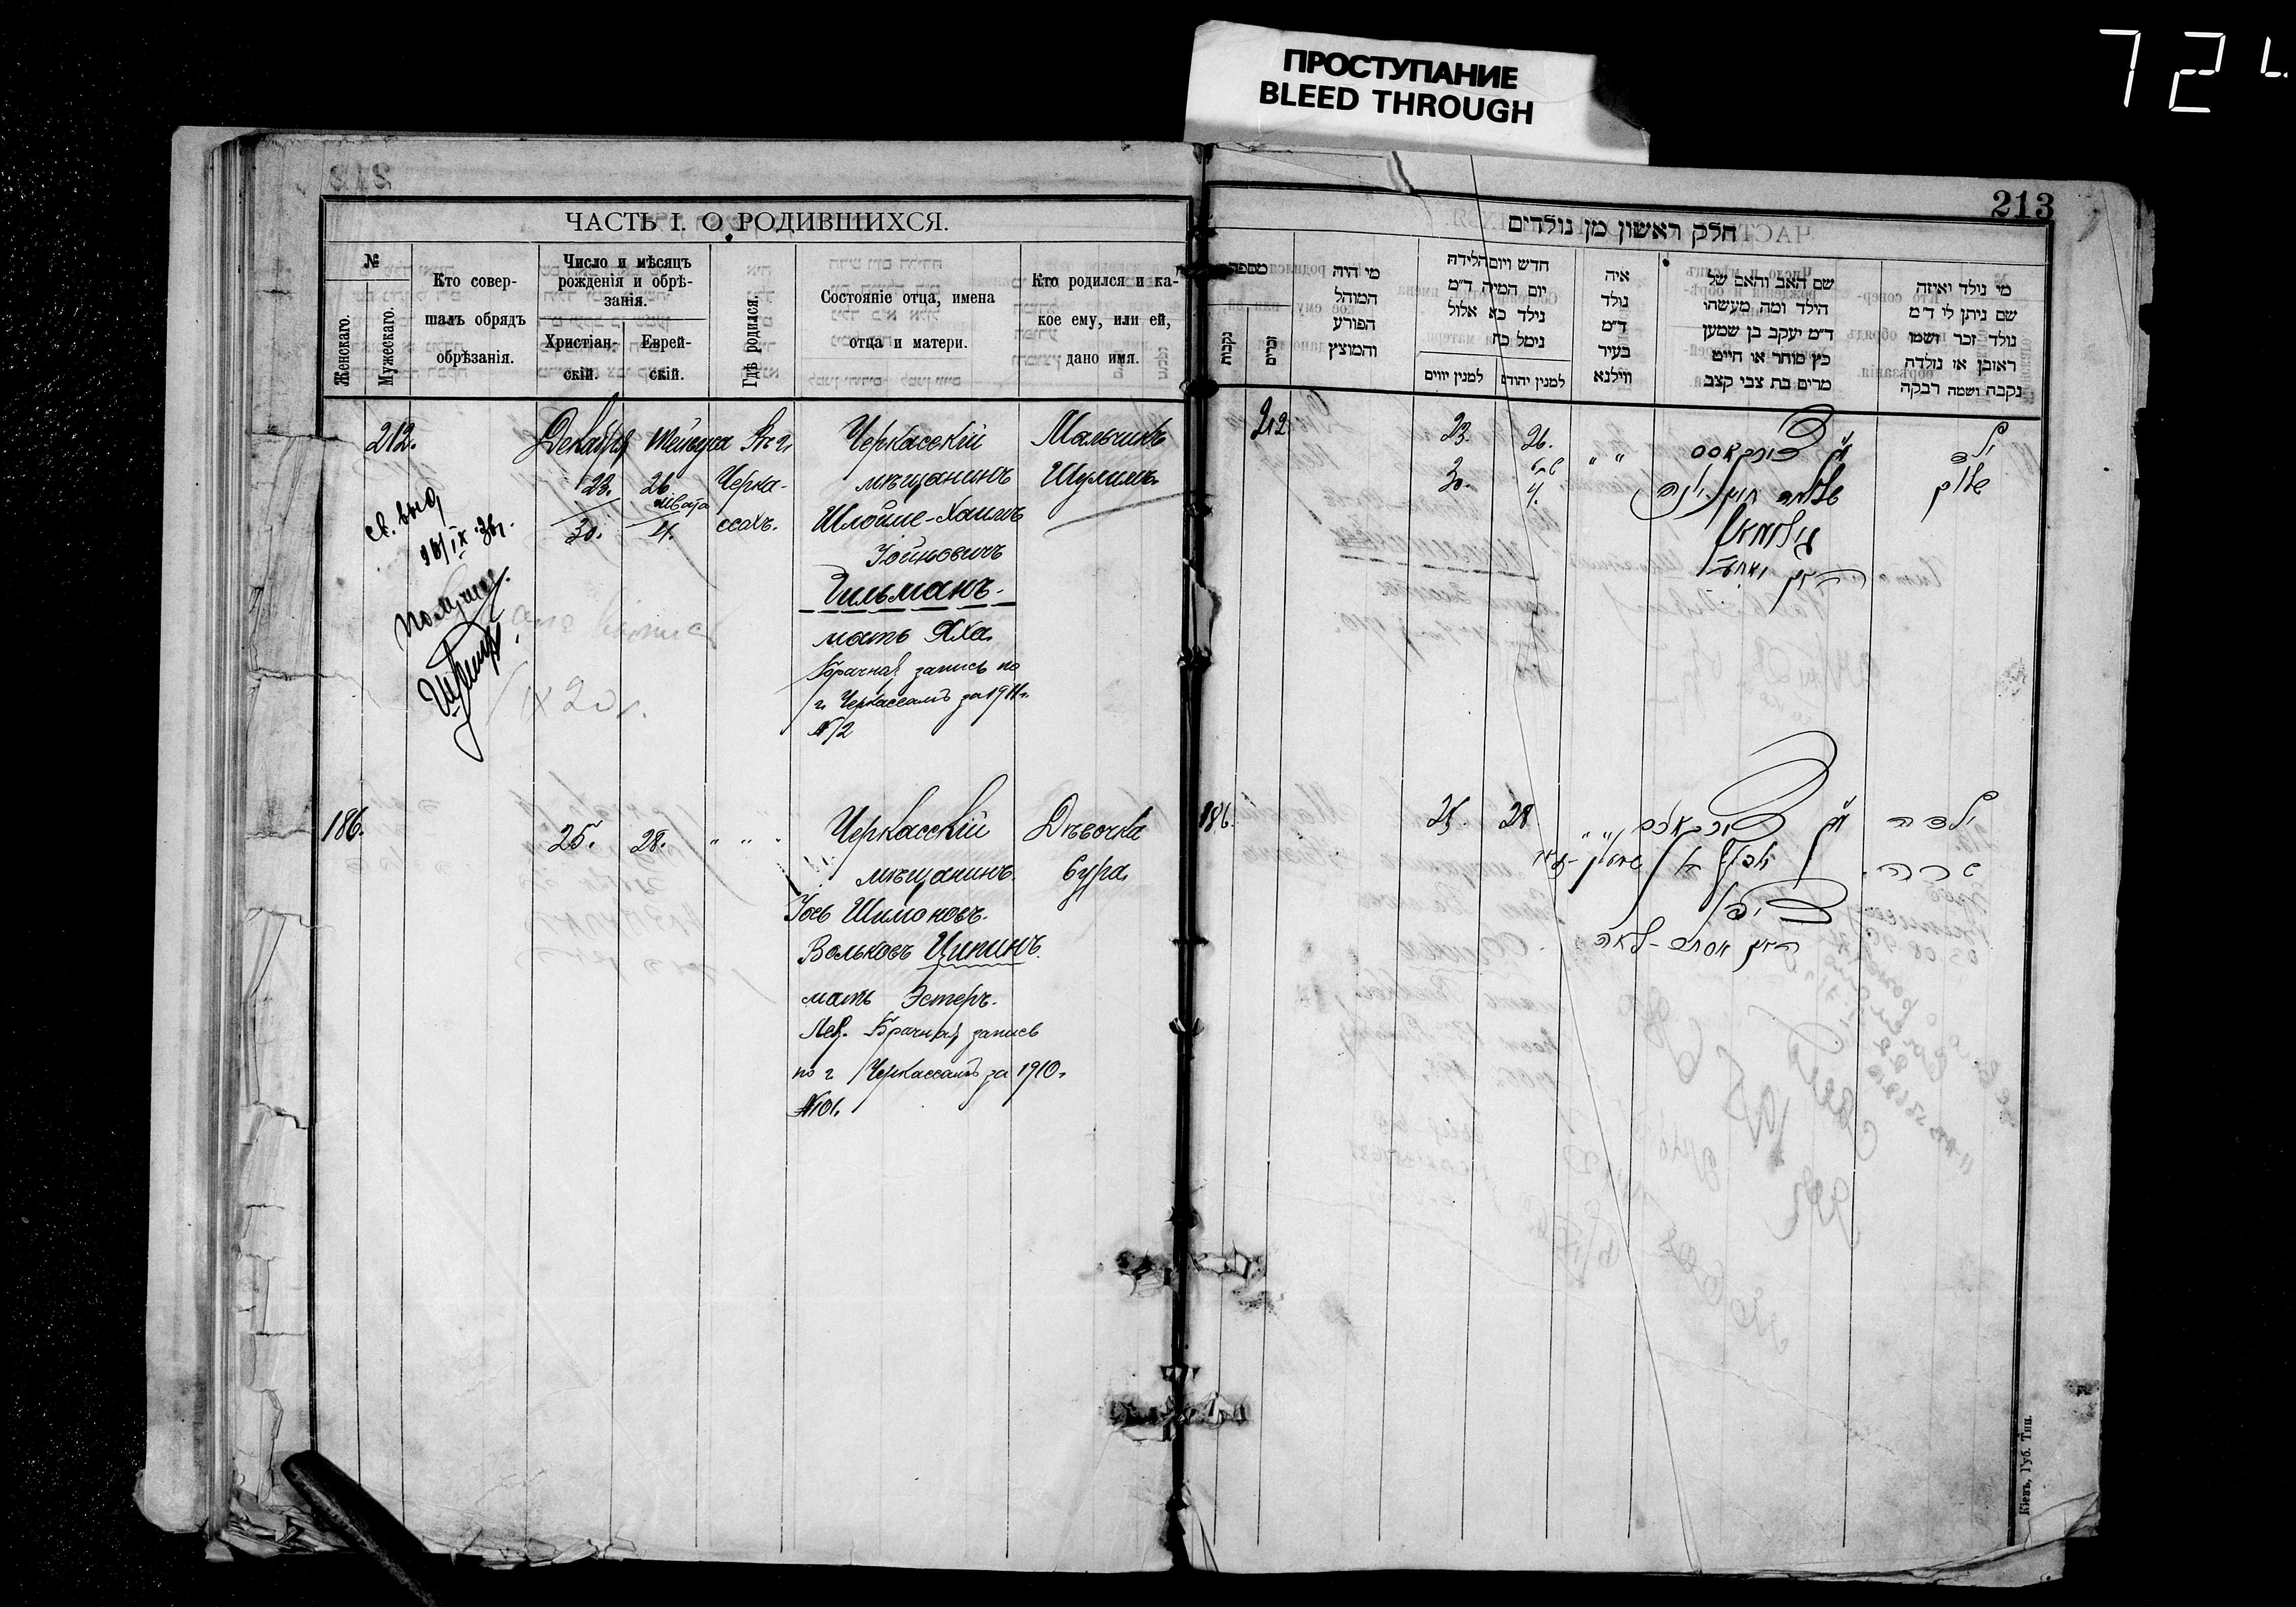 ПРОСТУПАНИЕ
BLEED THROUGH
724
ЧАСТЬ I. О РОДИВШИХСЯ.
№
Женскаго.
Мужескаго.
Кто совер-
шалъ обрядъ
обрѣзанія.
Число и мѣсяцъ
рожденія и обрѣ-
занія.
Христіан-
скій.
Еврей-
скій.
Гдѣ родился.
Состояніе отца, имена
отца и матери.
Кто родился и ка-
кое ему, или ей,
дано имя.
212.
Декабря
23.
30.
Тейвуса
26
Швата
4.
Въ г.
Черка-
ссахъ.
Черкасскій
мѣщанинъ
Шлойме-Хаимъ
Іойновичъ
Гильманъ.
мать Хая
Брачная запись по
г. Черкассамъ за 1911 г.
№ 12
Мальчикъ
Шулимъ.
св. выд.
186.
25.
28.
" "
Черкасскій
мѣщанинъ.
Іось Шимоновъ.
Вольковъ Ципинъ.
мать Эстеръ-
Лея. Брачная запись
по г. Черкассамъ за 1910 г.
№ 101.
Дѣвочка
Сура
213
חלק ראשון מן נולדים
מספר
נקבות
זכרים
מי היה
המוהל
הפורע
והמוצץ
חדש ויום הלידה
יום המילה ד״מ
נולד בא אלול
נימל כח
למנין יווים
למנין יהודים
איה
נולד
ד״מ
בעיר
ווילנא
שם האב והאם של
הילד ומה מעשהו
ד״מ יעקב בן שמעון
כץ סוחר או חייט
מרים בת צבי קצב
מי נולד ואיזה
שם ניתן לו ד״מ
נולד זכר ושמו
ראובן או נולדה
נקבה ושמה רבקה
212
23.
30.
26.
שבט
4.
" "
ילד
שלום
186.
25.
28
" "
ילדה
שרה.
Кіевъ, Губ. Тип.